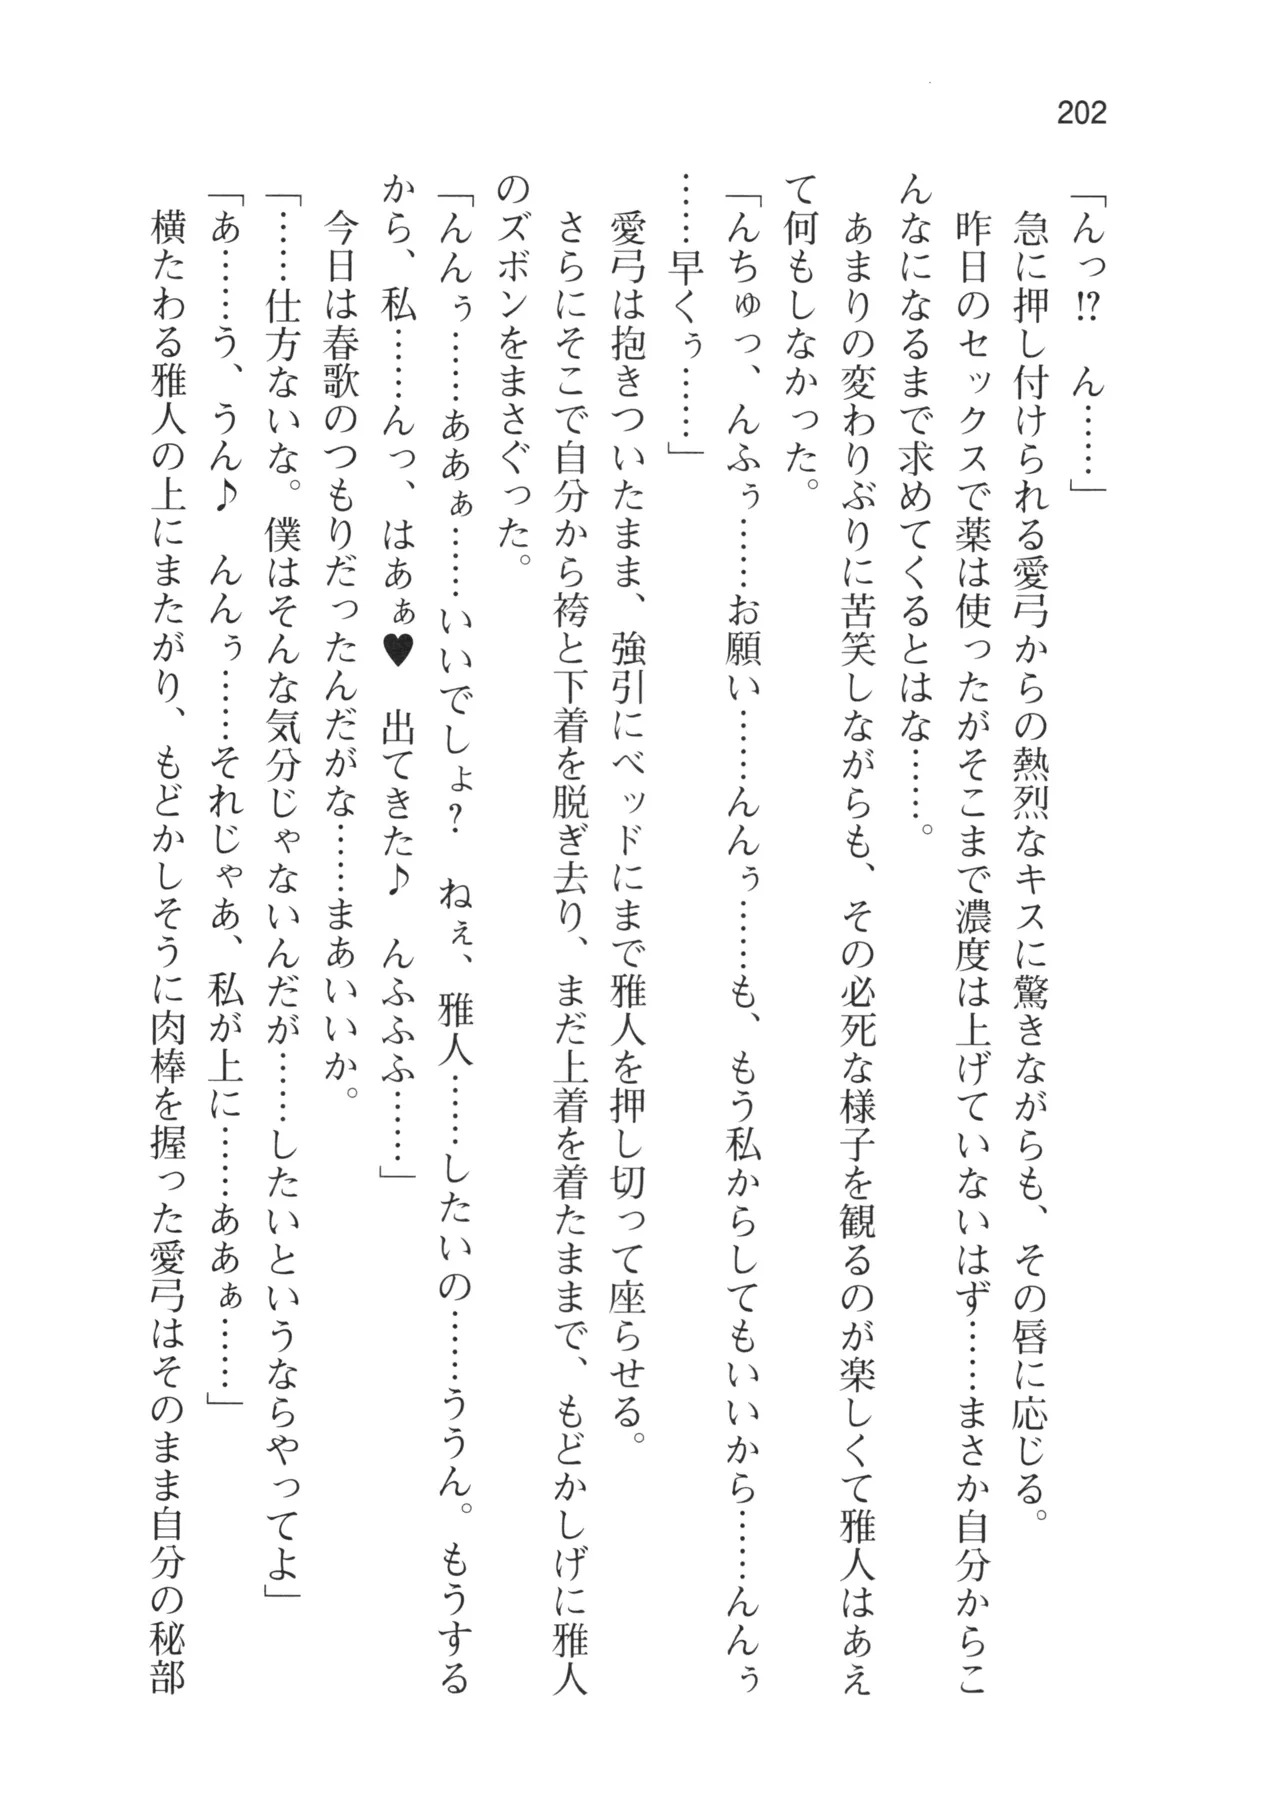 202
「んっ!?　ん……」
急に押し付けられる愛弓からの熱烈なキスに驚きながらも、その唇に応じる。
昨日のセックスで薬は使ったがそこまで濃度は上げていないはず……まさか自分からこ
んなになるまで求めてくるとはな……。
あまりの変わりぶりに苦笑しながらも、その必死な様子を観るのが楽しくて雅人はあえ
て何もしなかった。
「んちゅっ、んふぅ……お願い……んんぅ……も、もう私からしてもいいから……んんぅ
……早くぅ……」
愛弓は抱きついたまま、強引にベッドにまで雅人を押し切って座らせる。
さらにそこで自分から袴と下着を脱ぎ去り、まだ上着を着たままで、もどかしげに雅人
のズボンをまさぐった。
「んんぅ……ああぁ……いいでしょ?　ねぇ、雅人……したいの……ううん。もうする
から、私……んっ、はあぁ♥　出てきた♪　んふふふ……」
今日は春歌のつもりだったんだがな……まあいいか。
「……仕方ないな。僕はそんな気分じゃないんだが……したいというならやってよ」
「あ……う、うん♪　んんぅ……それじゃあ、私が上に……ああぁ……」
横たわる雅人の上にまたがり、もどかしそうに肉棒を握った愛弓はそのまま自分の秘部